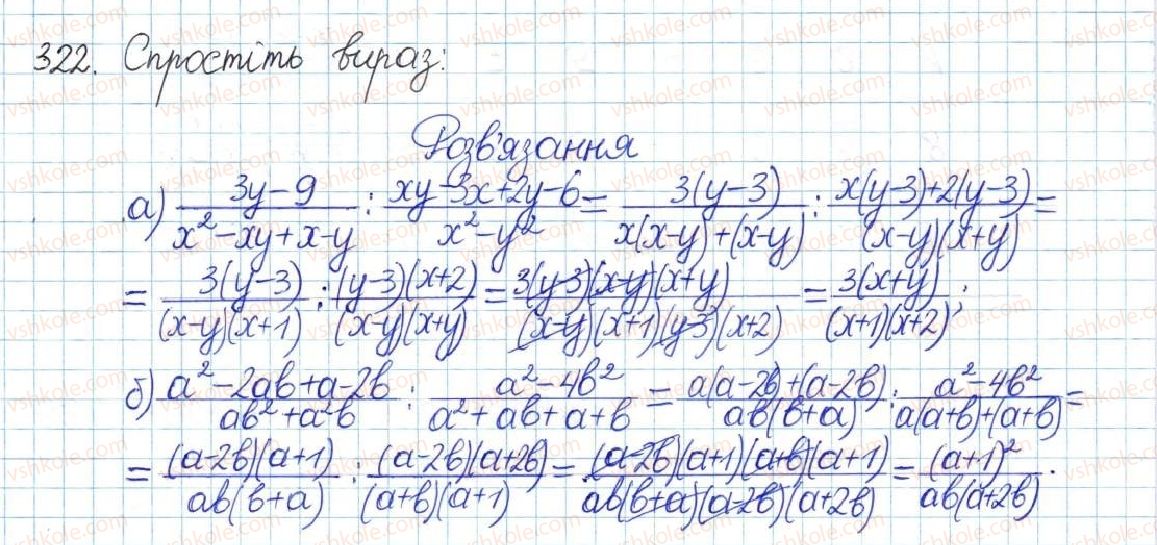 322. Спростіть вираз:
Розв'язання
а) (3y-9)/(x²-xy+x-y) : (xy-3x+2y-6)/(x²-y²) = 3(y-3)/(x(x-y)+(x-y)) : (x(y-3)+2(y-3))/((x-y)(x+y)) =
= 3(y-3)/((x-y)(x+1)) : (y-3)(x+2)/((x-y)(x+y)) = 3(y-3)(x-y)(x+y)/((x-y)(x+1)(y-3)(x+2)) = 3(x+y)/((x+1)(x+2));
б) (a²-2ab+a-2b)/(ab²+a²b) : (a²-4b²)/(a²+ab+a+b) = (a(a-2b)+(a-2b))/(ab(b+a)) : (a²-4b²)/(a(a+b)+(a+b)) =
= (a-2b)(a+1)/(ab(b+a)) : (a-2b)(a+2b)/((a+b)(a+1)) = (a-2b)(a+1)(a+b)(a+1)/(ab(b+a)(a-2b)(a+2b)) = (a+1)²/(ab(a+2b)).